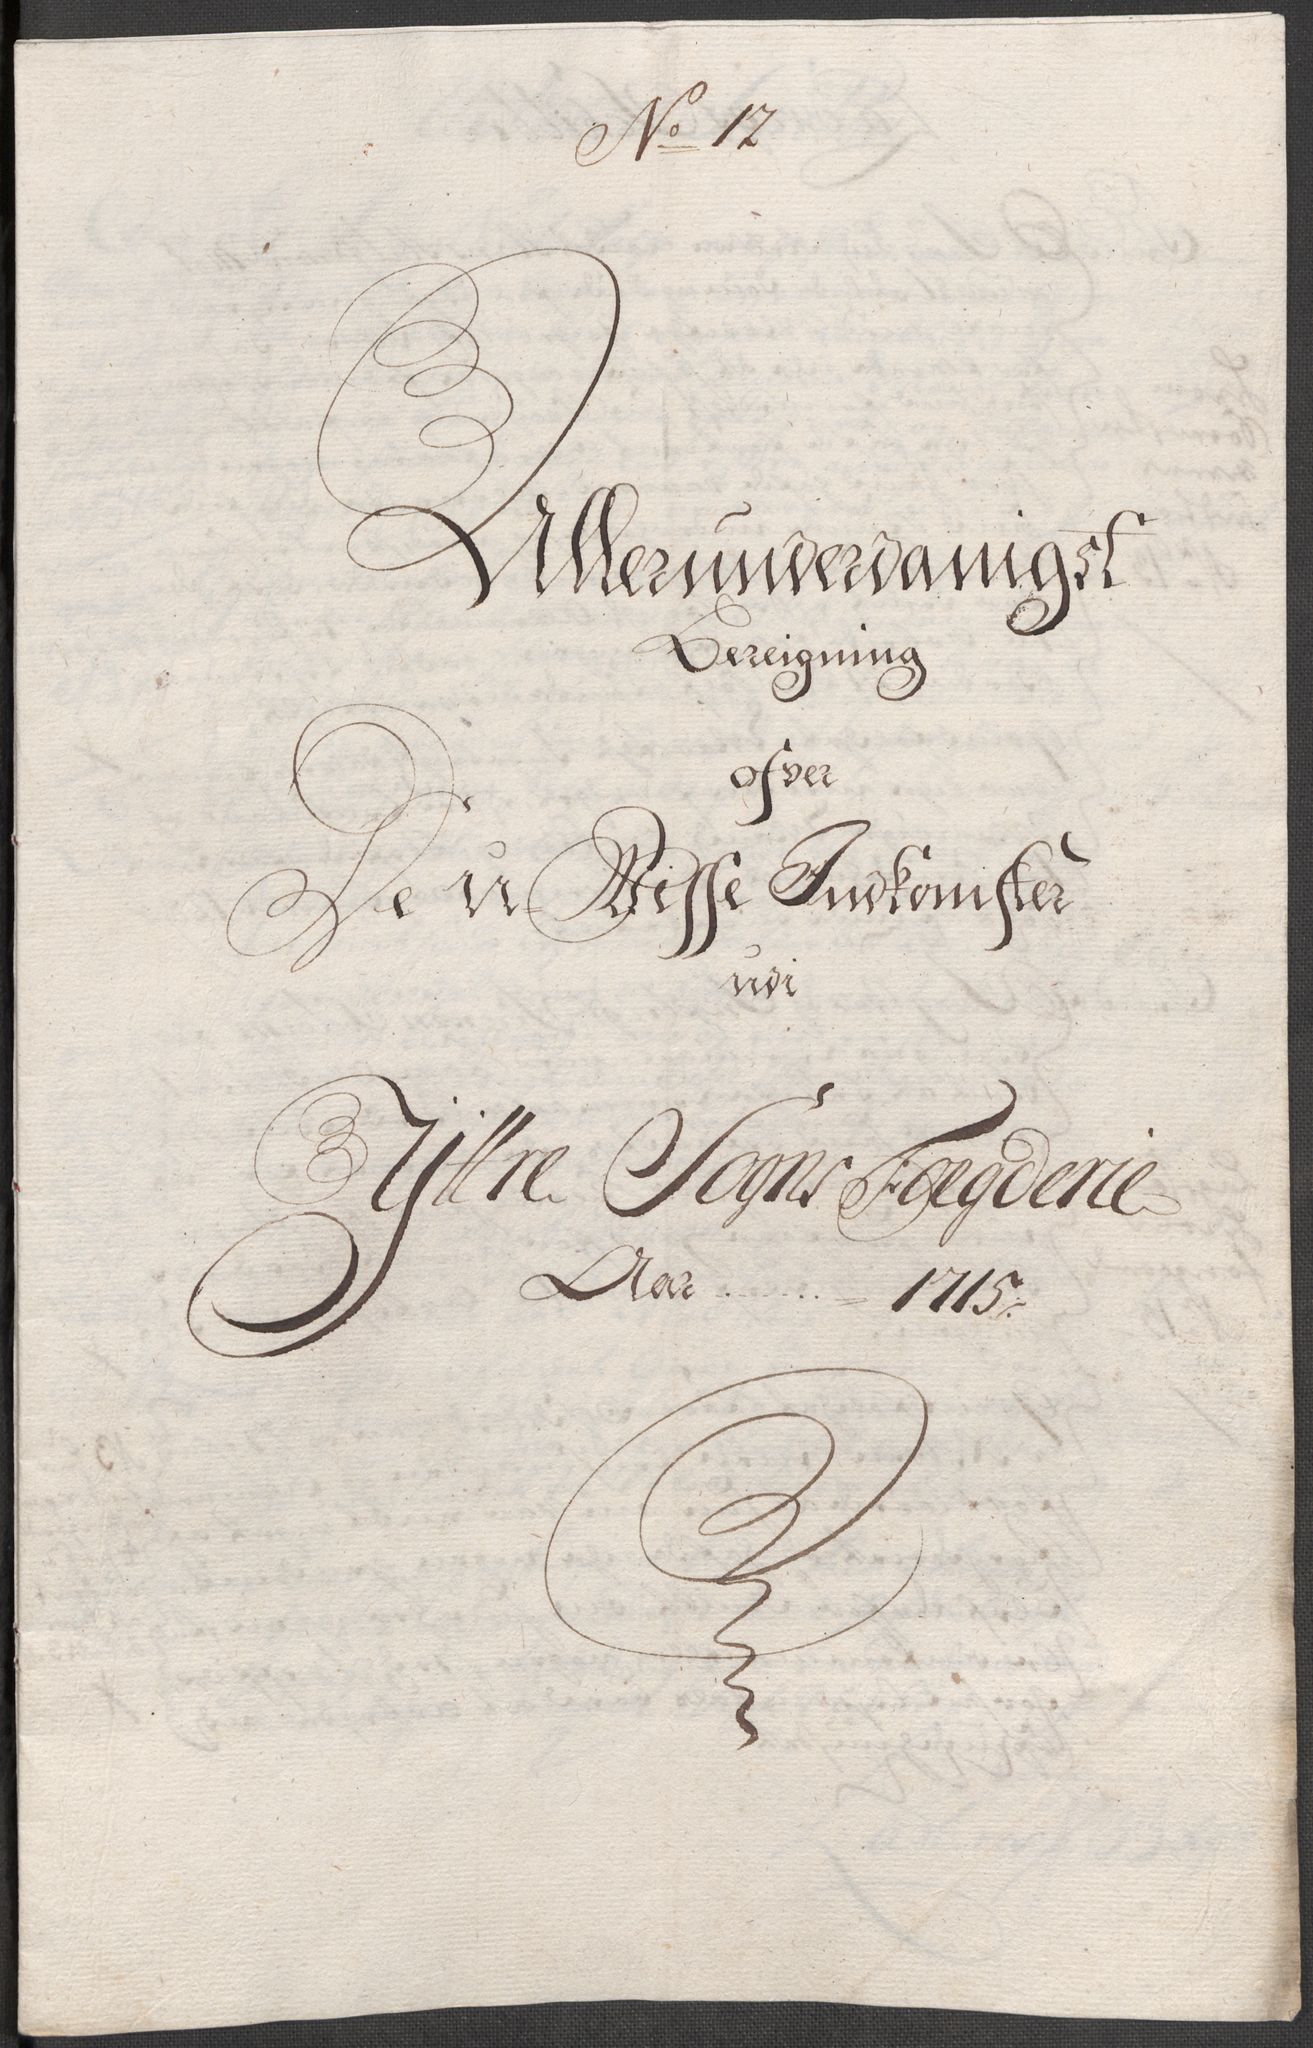 No 12
Allerunderdanigst
Bereigning
ofver
De u Visse Indkomster
udi
Yttre Sogns Foegderie
Aar ........ 1715